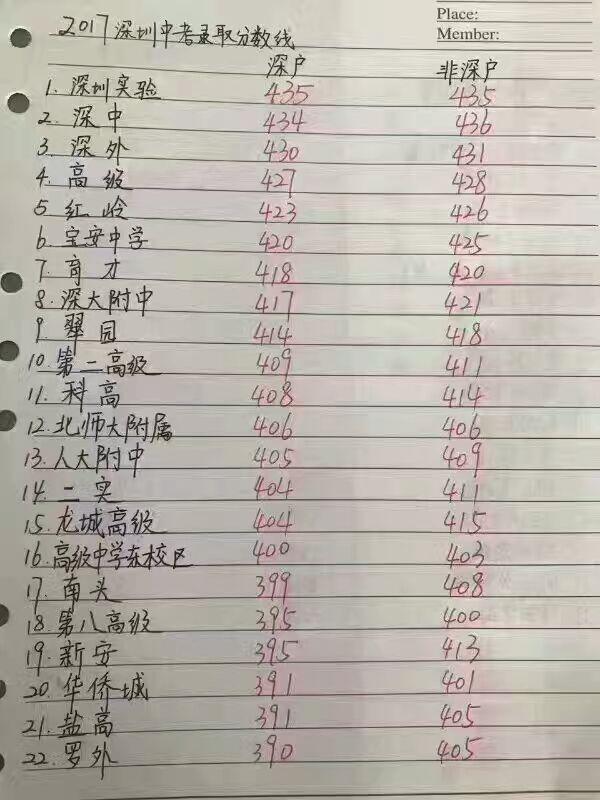 Place:
Member:
2017深圳中考录取分数线
深户 非深户
1. 深圳实验 435 435
2. 深中 434 436
3. 深外 430 431
4. 高级 427 428
5 红岭 423 426
6 宝安中学 420 425
7 育才 418 420
8. 深大附中 417 421
9. 翠园 414 418
10. 第二高级 409 411
11. 科高 408 414
12. 北师大附属 406 406
13. 人大附中 405 409
14. 二实 404 411
15. 龙城高级 404 415
16. 高级中学东校区 400 403
17. 南头 399 408
18. 第八高级 395 400
19. 新安 395 413
20. 华侨城 391 401
21. 盐高 391 405
22. 罗外 390 405